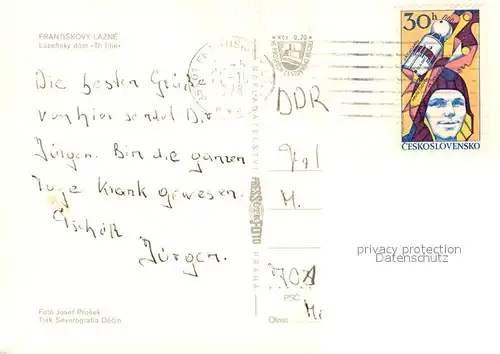 FRANTIŠKOVY LÁZNĚ
Lázeňský dům »Tři lilie«
Die besten Grüße
von hier sendet Dir
Jürgen. Bin die ganzen
Tage Krank gewesen.
Tschüß
Jürgen.
Foto Josef Prošek
Tisk Severografia Děčín
VYDAVATELSTVÍ
PRESSFOTO
PRAHA
Kčs 0,70
30h
ČESKOSLOVENSKO
DDR
M.
PSČ
Okres
privacy protection
Datenschutz